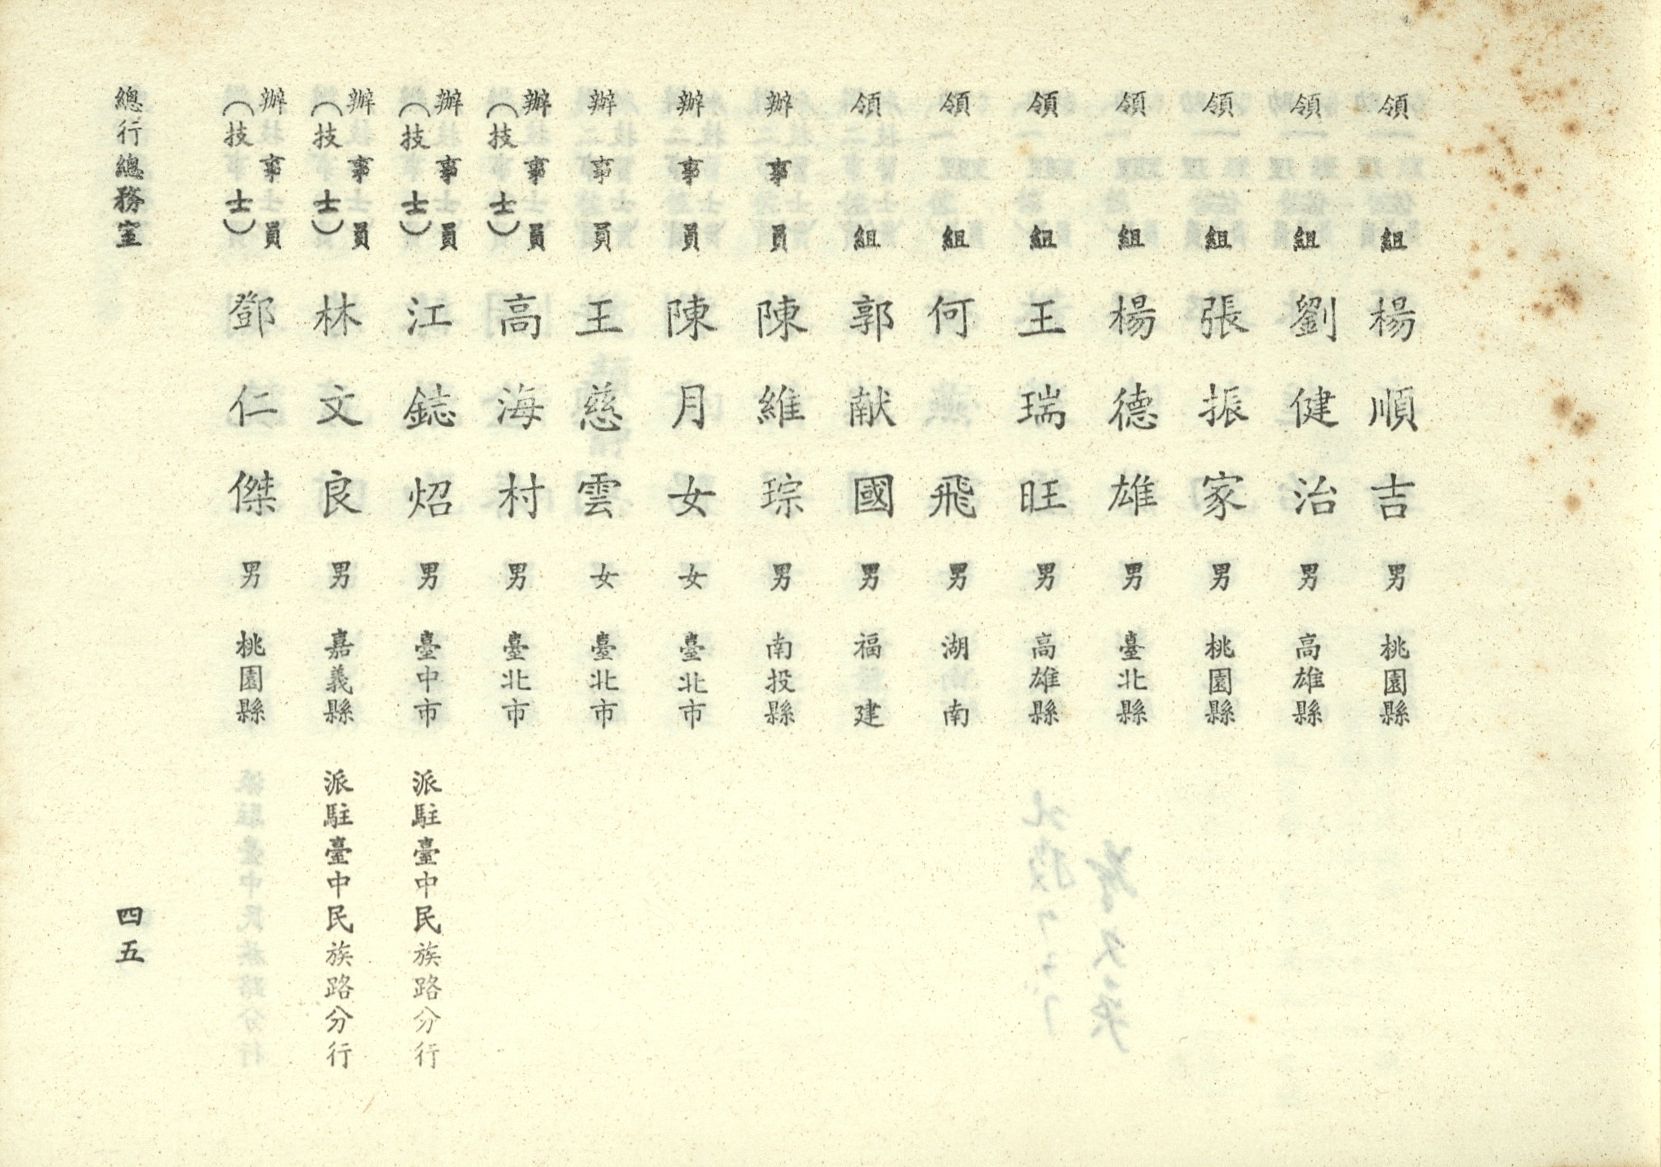 領組 楊順吉 男 桃園縣
領組 劉健治 男 高雄縣
領組 張振家 男 桃園縣
領組 楊德雄 男 臺北縣
領組 王瑞旺 男 高雄縣
領組 何飛 男 湖南
領組 郭献國 男 福建
辦事員 陳維琮 男 南投縣
辦事員 陳月女 女 臺北市
辦事員 王慈雲 女 臺北市
辦事員(技士) 高海村 男 臺北市
辦事員(技士) 江鋕炤 男 臺中市 派駐臺中民族路分行
辦事員(技士) 林文良 男 嘉義縣 派駐臺中民族路分行
辦事員(技士) 鄧仁傑 男 桃園縣
總行總務室 四五